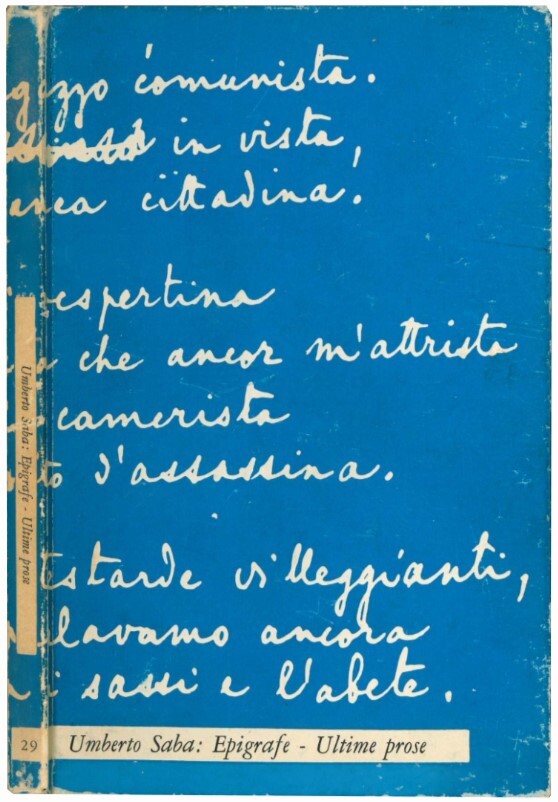 comunista.
in vista,
cittadina.
vespertina
che ancor m'attrista
camerista
d'assassina.
testarde villeggianti,
ancora
i sassi e l'abete.
Umberto Saba: Epigrafe - Ultime prose
29
Umberto Saba: Epigrafe - Ultime prose